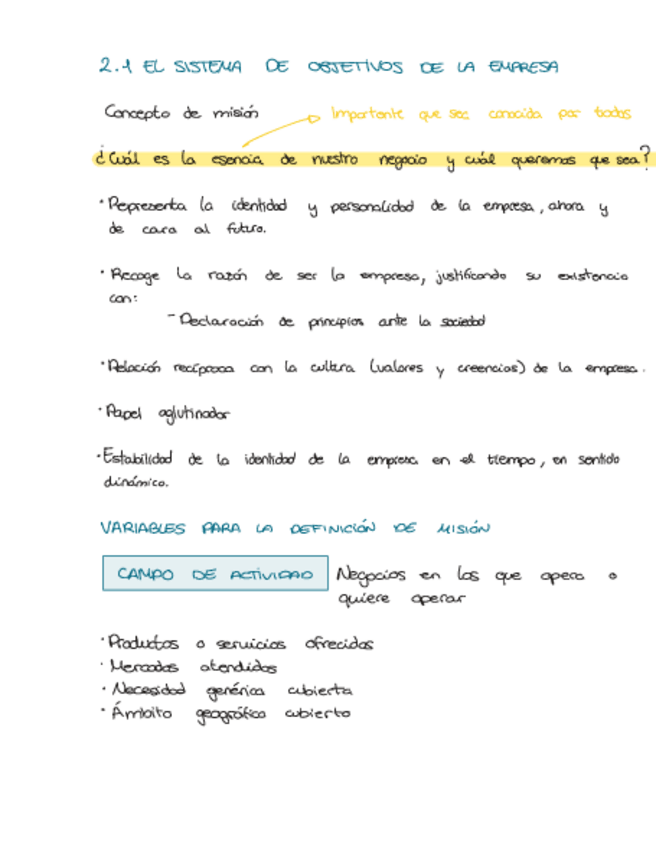 2.1 EL SISTEMA DE OBJETIVOS DE LA EMPRESA
Concepto de misión → Importante que sea conocida por todos
¿Cuál es la esencia de nuestro negocio y cuál queremos que sea?
· Representa la identidad y personalidad de la empresa, ahora y
de cara al futuro.
· Recoge la razón de ser la empresa, justificando su existencia
con:
- Declaración de principios ante la sociedad
· Relación recíproca con la cultura (valores y creencias) de la empresa.
· Papel aglutinador
· Estabilidad de la identidad de la empresa en el tiempo, en sentido
dinámico.
VARIABLES PARA LA DEFINICIÓN DE MISIÓN
CAMPO DE ACTIVIDAD Negocios en los que opera o
quiere operar
· Productos o servicios ofrecidos
· Mercados atendidos
· Necesidad genérica cubierta
· Ámbito geográfico cubierto